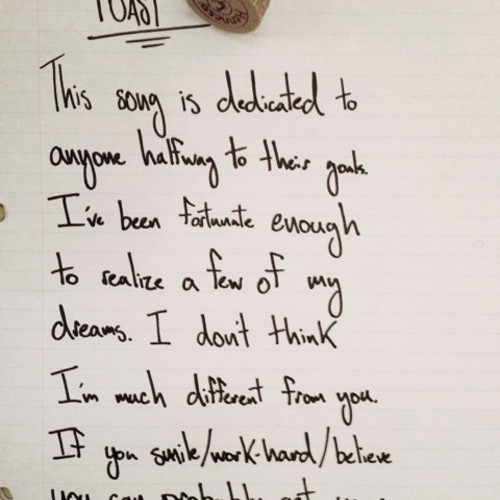 TOAST
This song is dedicated to
anyone halfway to their goals.
I've been fortunate enough
to realize a few of my
dreams. I don't think
I'm much different from you.
If you smile/work-hard/believe
you can probably get your